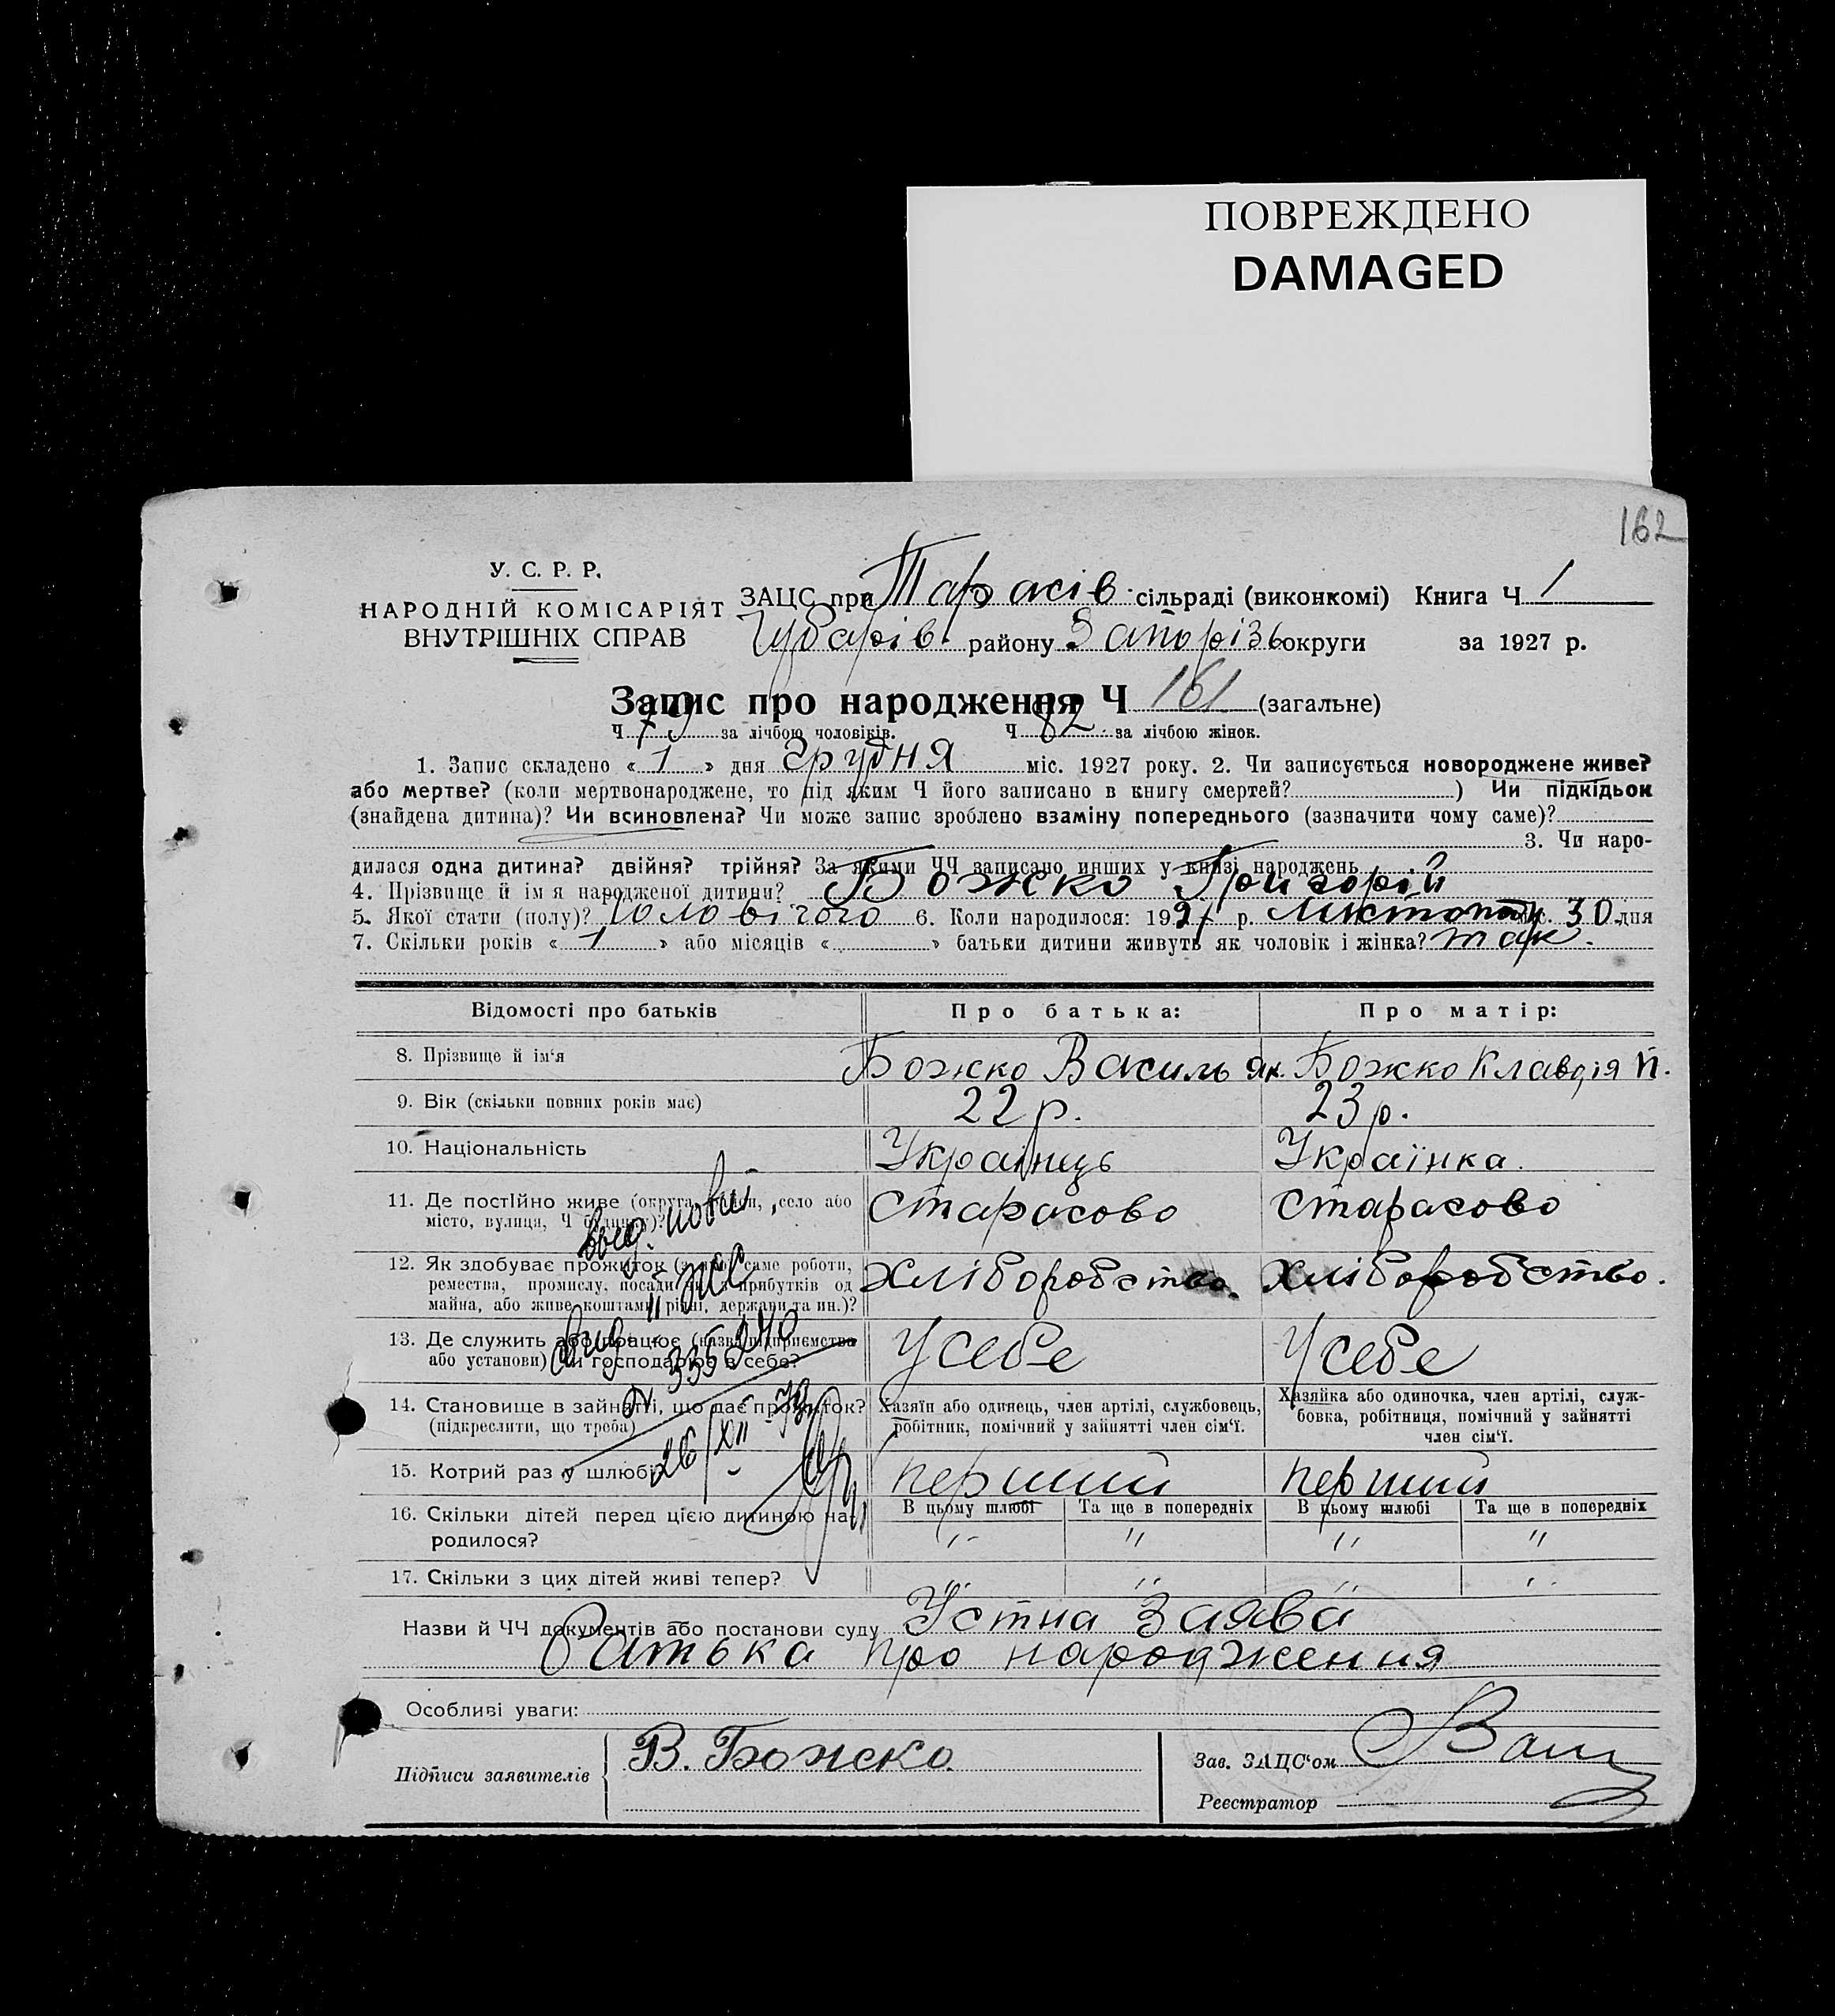 ПОВРЕЖДЕНО
DAMAGED
162
У. С. Р. Р.
НАРОДНІЙ КОМІСАРІЯТ
ВНУТРІШНІХ СПРАВ
ЗАЦС при Тарасів сільраді (виконкомі) Книга Ч 1
Губарів. району Запоріз округи за 1927 р.
Запис про народження Ч 161 (загальне)
Ч 79 за лічбою чоловіків. Ч 82 за лічбою жінок.
1. Запис складено « 1 » дня грудня міс. 1927 року. 2. Чи записується новороджене живе?
або мертве? (коли мертвонароджене, то під яким Ч його записано в книгу смертей? ) Чи підкідьок
(знайдена дитина)? Чи всиновлена? Чи може запис зроблено взаміну попереднього (зазначити чому саме)?
3. Чи наро-
дилася одна дитина? двійня? трійня? За якими ЧЧ записано инших у книзі народжень
4. Прізвище й ім я народженої дитини? Божко Григорій
5. Якої стати (полу)? чоловічого 6. Коли народилося: 1927 р. листопаду міс. 30 дня
7. Скільки років « 1 » або місяців « » батьки дитини живуть як чоловік і жінка? так.
Відомості про батьків Про батька: Про матір:
8. Прізвище й ім'я Божко Василь Як. Божко Клавдія П.
9. Вік (скільки повних років має) 22 р. 23 р.
10. Національність Українець Українка.
11. Де постійно живе (округа, район, село або
місто, вулиця, Ч будинку)? Старасово Старасово
12. Як здобуває прожиток (з якої саме роботи,
ремества, промислу, посади чи з прибутків од
майна, або живе коштами рідні, держави та ин.)? Хліборобство. Хліборобство.
13. Де служить або працює (назва підприємства
або установи) чи господарює в себе? У себе У себе
335240
14. Становище в зайнятті, що дає прожиток?
(підкреслити, що треба)
Хазяїн або одинець, член артілі, службовець,
робітник, помічний у зайнятті член сім'ї.
Хазяйка або одиночка, член артілі, служ-
бовка, робітниця, помічний у зайнятті
член сім'ї.
26/XII
15. Котрий раз у шлюбі? перший перший
16. Скільки дітей перед цією дитиною на-
родилося?
В цьому шлюбі Та ще в попередніх В цьому шлюбі Та ще в попередніх
" " " "
17. Скільки з цих дітей живі тепер? " " " "
Назви й ЧЧ документів або постанови суду Устна заява
батька про народження
Особливі уваги:
Підписи заявителів В. Божко.
Зав. ЗАЦС'ом
Реєстратор